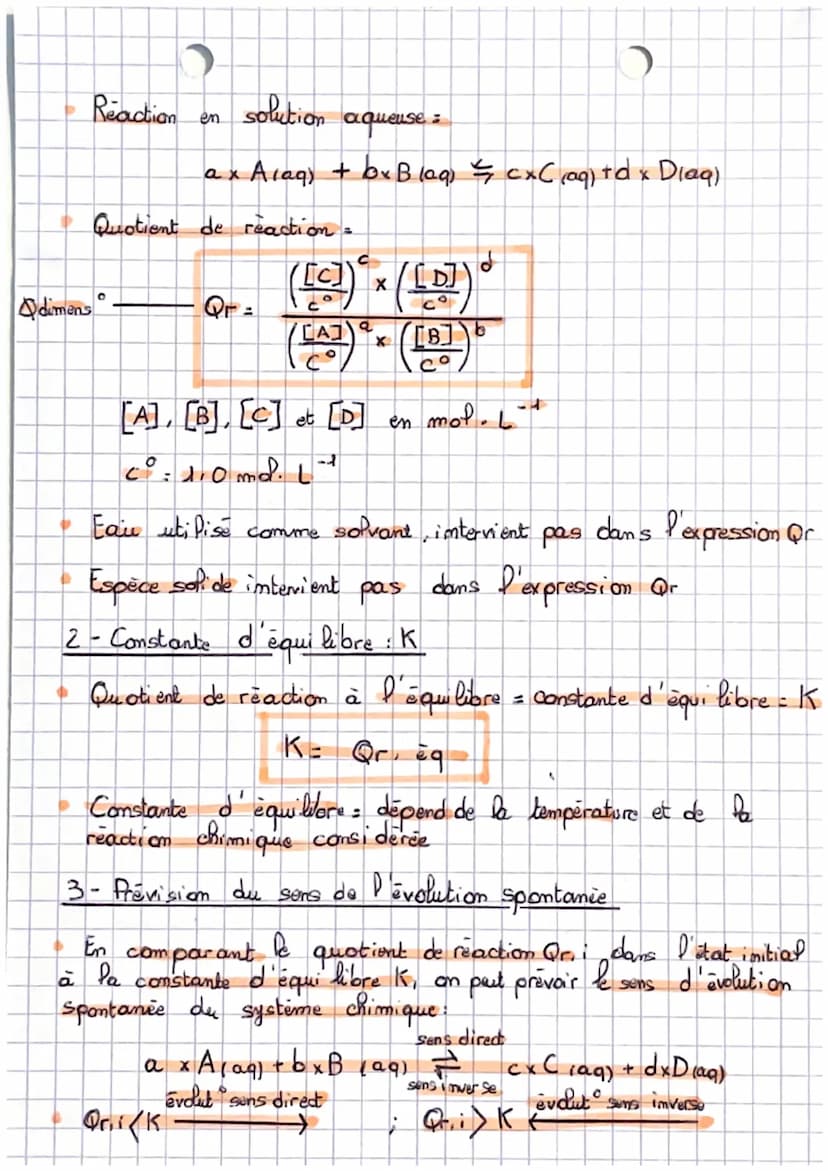 • Réaction en solution aqueuse :
a x A(aq) + b x B(aq) ⇋ c x C(aq) + d x D(aq)
• Quotient de réaction :
Qdimens° — Qr = (([C]/c°)^c x ([D]/c°)^d) / (([A]/c°)^a x ([B]/c°)^b)
[A], [B], [C] et [D] en mol.L⁻¹
c° = 1,0 mol.L⁻¹
• Eau utilisé comme solvant, intervient pas dans l'expression Qr
• Espèce solide intervient pas dans l'expression Qr
2 - Constante d'équilibre : K
• Quotient de réaction à l'équilibre = constante d'équilibre = K
K = Qr, éq
• Constante d'équilibre = dépend de la température et de la
réaction chimique considérée
3 - Prévision du sens de l'évolution spontanée
• En comparant le quotient de réaction Qr,i dans l'état initial
à la constante d'équilibre K, on peut prévoir le sens d'évolution
spontanée du système chimique :
sens direct
a x A(aq) + b x B(aq) ⇌ c x C(aq) + d x D(aq)
sens inverse
évolut° sens direct évolut° sens inverse
• Qr,i < K ⟶ ; Qr,i > K ⟵